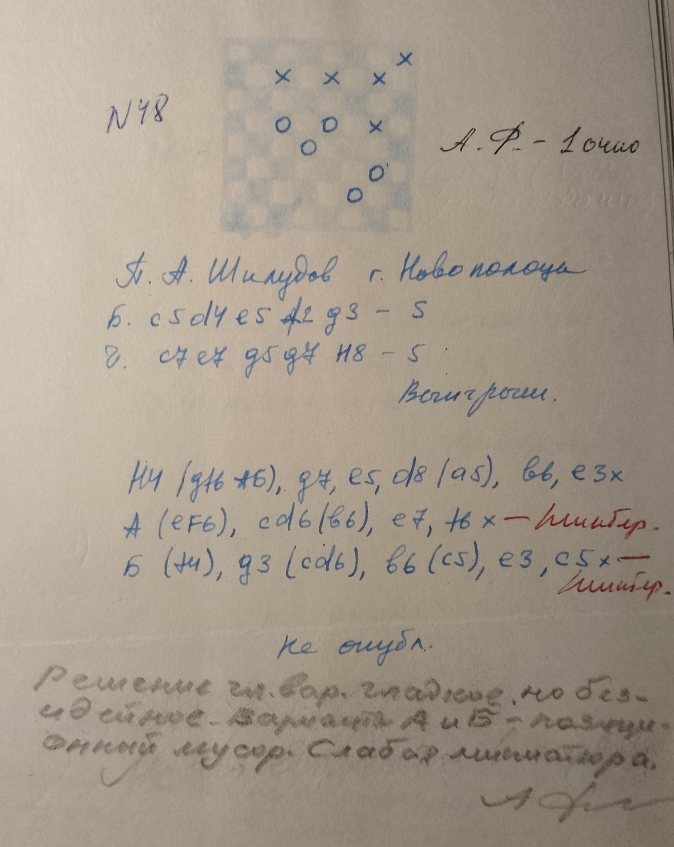 N48
А. Ф. - 1 очко
П. А. Шклудов г. Новополоцк
Б. c5 d4 e5 f2 g3 - 5
Ч. c7 e7 g5 g7 H8 - 5
Выигрыш.
H4 (gf6 АБ), g7, e5, d8 (a5), b6, e3x
А (eF6), cd6 (b6), e7, f6 x —
Б (f4), g3 (cd6), b6 (c5), e3, c5x —
Не опубл.
Решение гл. вар. гладкое, но без-
идейное. Варианты А и Б - позици-
онный мусор. Слабая миниатюра.